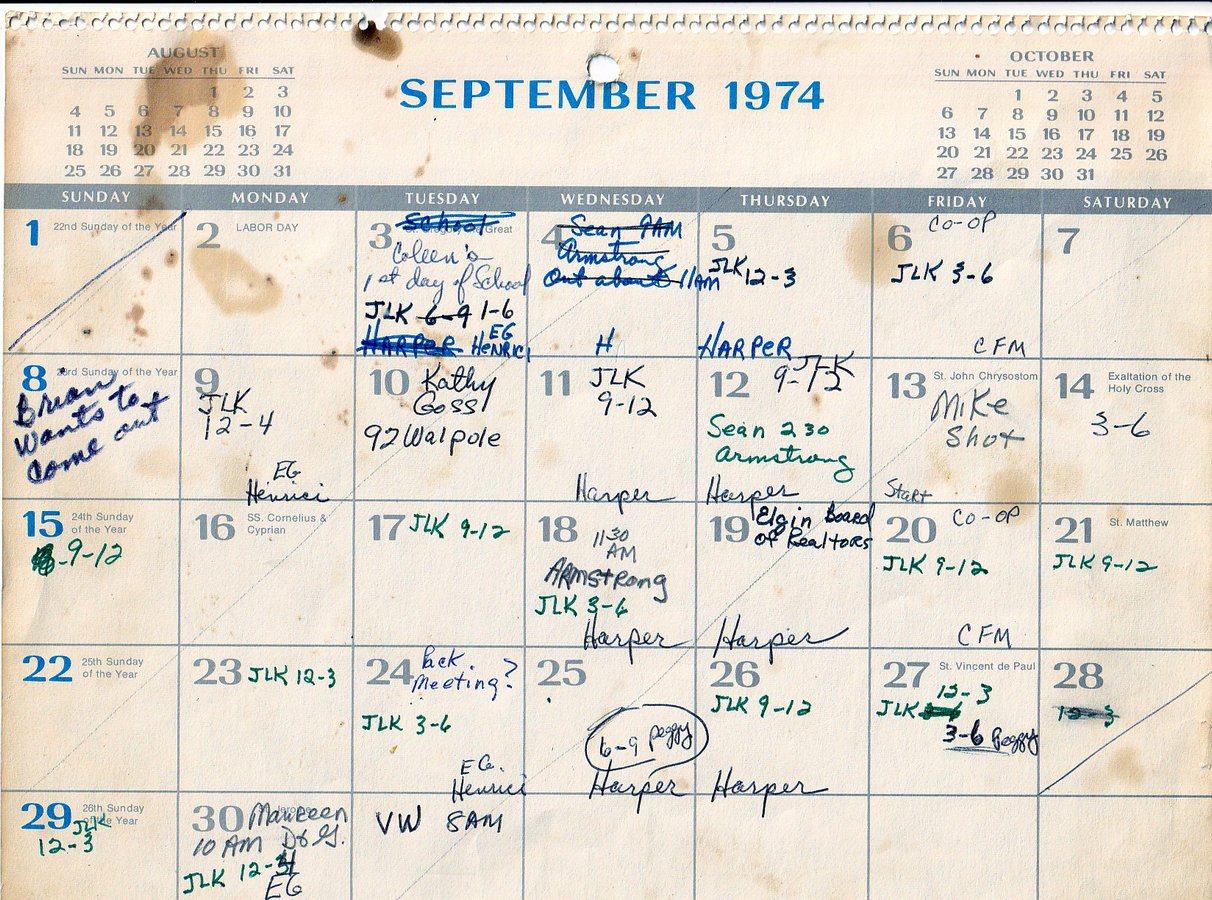 AUGUST
SUN MON TUE WED THU FRI SAT
1 2 3
4 5 6 7 8 9 10
11 12 13 14 15 16 17
18 19 20 21 22 23 24
25 26 27 28 29 30 31
SEPTEMBER 1974
OCTOBER
SUN MON TUE WED THU FRI SAT
1 2 3 4 5
6 7 8 9 10 11 12
13 14 15 16 17 18 19
20 21 22 23 24 25 26
27 28 29 30 31
SUNDAY MONDAY TUESDAY WEDNESDAY THURSDAY FRIDAY SATURDAY
1 22nd Sunday of the Year
2 LABOR DAY
3 School Great
Coleen's
1st day of School
JLK 6-9 1-6
EG
HARPER HENRICI
4 Sean 9AM
Armstrong
Out about 11AM
H
5
JLK 12-3
HARPER
6 CO-OP
JLK 3-6
CFM
7
8 23rd Sunday of the Year
Brian
Wants to
Come out
9
JLK
12-4
EG
Henrici
10 Kathy
Goss
92 Walpole
11 JLK
9-12
Harper
12 JLK
9-12
Sean 230
Armstrong
Harper
13 St. John Chrysostom
Mike
Shot
Start
14 Exaltation of the
Holy Cross
3-6
15 24th Sunday
of the Year
9-12
16 SS. Cornelius &
Cyprian
17 JLK 9-12
18 1130
AM
ARMSTRONG
JLK 3-6
Harper
19 Elgin Board
of Realtors
Harper
20 CO-OP
JLK 9-12
CFM
21 St. Matthew
JLK 9-12
22 25th Sunday
of the Year
23 JLK 12-3
24 Pack
Meeting?
JLK 3-6
EG.
Henrici
25
6-9 peggy
Harper
26
JLK 9-12
Harper
27 St. Vincent de Paul
12-3
JLK
3-6 Peggy
28
12-3
29 26th Sunday
of the Year
JLK
12-3
30 St. Jerome
Maureen
10 AM Dr G.
JLK 12-3
EG
VW 8AM